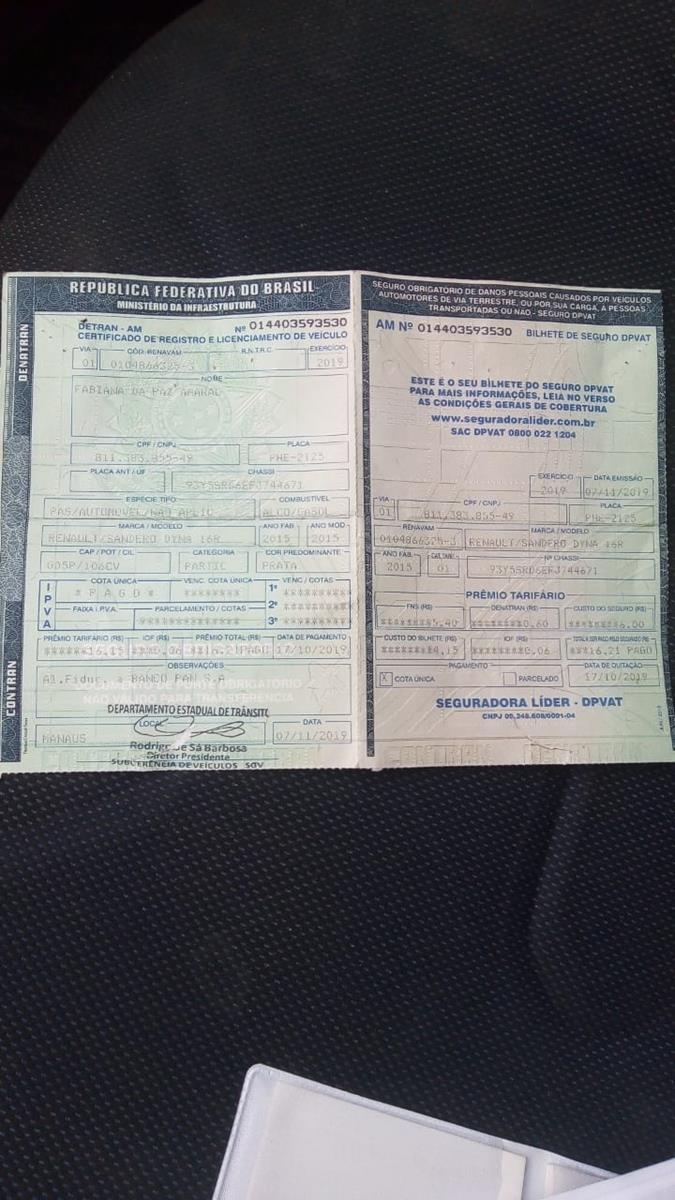 REPÚBLICA FEDERATIVA DO BRASIL
MINISTÉRIO DA INFRAESTRUTURA
DENATRAN
CONTRAN
DETRAN - AM Nº 014403593530
CERTIFICADO DE REGISTRO E LICENCIAMENTO DE VEÍCULO
VIA CÓD. RENAVAM R.N.T.R.C. EXERCÍCIO
01 0104866325-3 2019
NOME
FABIANA DA PAZ AMARAL
CPF / CNPJ PLACA
811.383.855-49 PHE-2125
PLACA ANT / UF CHASSI
93Y5SRD6EFJ744671
ESPÉCIE TIPO COMBUSTÍVEL
PAS/AUTOMOVEL/NAO APLIC ALCO/GASOL
MARCA / MODELO ANO FAB ANO MOD
RENAULT/SANDERO DYNA 16R 2015 2015
CAP / POT / CIL CATEGORIA COR PREDOMINANTE
005P/106CV PARTIC PRATA
IPVA
COTA ÚNICA VENC. COTA ÚNICA VENC / COTAS
* P A G O * ******** 1ª ********
FAIXA I.P.V.A. PARCELAMENTO / COTAS 2ª ********
3ª ********
PRÊMIO TARIFÁRIO (R$) IOF (R$) PRÊMIO TOTAL (R$) DATA DE PAGAMENTO
******16.15 ***0.06 ***16.21 PAGO 17/10/2019
OBSERVAÇÕES
Al.Fiduc. a BANCO PAN S.A
DOCUMENTO DE PORTE OBRIGATÓRIO
NÃO VÁLIDO PARA TRANSFERÊNCIA
DEPARTAMENTO ESTADUAL DE TRÂNSITO
LOCAL DATA
MANAUS 07/11/2019
Rodrigo de Sá Barbosa
Diretor Presidente
SUBGERÊNCIA DE VEÍCULOS SGV
SEGURO OBRIGATÓRIO DE DANOS PESSOAIS CAUSADOS POR VEÍCULOS
AUTOMOTORES DE VIA TERRESTRE, OU POR SUA CARGA, A PESSOAS
TRANSPORTADAS OU NÃO - SEGURO DPVAT
AM Nº 014403593530 BILHETE DE SEGURO DPVAT
ESTE É O SEU BILHETE DO SEGURO DPVAT
PARA MAIS INFORMAÇÕES, LEIA NO VERSO
AS CONDIÇÕES GERAIS DE COBERTURA
www.seguradoralider.com.br
SAC DPVAT 0800 022 1204
EXERCÍCIO DATA EMISSÃO
2019 07/11/2019
VIA CPF / CNPJ PLACA
01 811.383.855-49 PHE-2125
RENAVAM MARCA / MODELO
0104866325-3 RENAULT/SANDERO DYNA 16R
ANO FAB. CAT. TARIF. Nº CHASSI
2015 01 93Y5SRD6EFJ744671
PRÊMIO TARIFÁRIO
FNS (R$) DENATRAN (R$) CUSTO DO SEGURO (R$)
*******5.40 *******0.60 *******6.00
CUSTO DO BILHETE (R$) IOF (R$) TOTAL A SER PAGO PELO SEGURADO (R$)
*******4.15 *******0.06 ***16.21 PAGO
PAGAMENTO DATA DE QUITAÇÃO
X COTA ÚNICA PARCELADO 17/10/2019
SEGURADORA LÍDER - DPVAT
CNPJ 09.248.608/0001-04